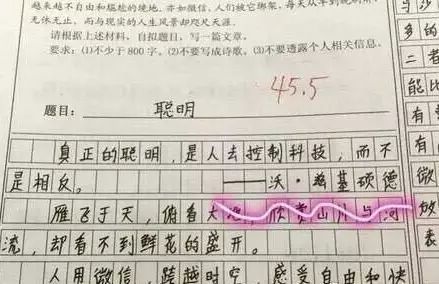 越来越不自由和尴尬的境地。亦如微信,人们被它绑架,每天从早到晚刷屏,
无休无止,而与现实的人生风景却咫尺天涯。
请根据上述材料,自拟题目,写一篇文章。
要求:(1)不少于800字。(2)不要写成诗歌。(3)不要透露个人相关信息。
45.5
题目: 聪明
真正的聪明,是人去控制科技,而不
是相反。 ——沃·兹基硕德
雁飞于天,俯看大地,
山川与河
流,却看不到鲜花的盛开。
人用微信,跨越时空,感受自由和快
与沙
多的
二者
能比
有
有
微
放
表